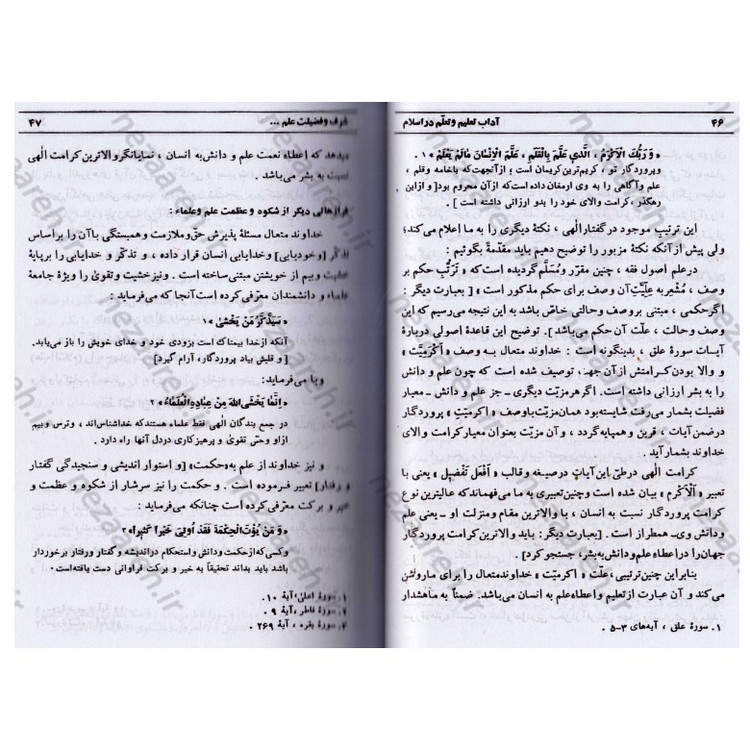 ۴۶
آداب تعلیم و تعلّم در اسلام
« وَ رَبُّكَ الْاَكْرَمُ ، الَّذي عَلَّمَ بِالْقَلَمِ ، عَلَّمَ الْاِنْسانَ مالَمْ يَعْلَمْ » ۱ .
وپروردگار تو ، کریم‌ترین کریمان است ؛ از آنجهت که باخامه وقلم ،
علم وآگاهی را به وی ارمغان داده است که از آن محروم بود [ و از این
رهگذر ، کرامت والای خود را بدو ارزانی داشته است ] .
این ترتیب موجود در گفتار الهی ، نکتهٔ دیگری را به ما اعلام می‌کند ؛
ولی پیش از آنکه نکتهٔ مزبور را توضیح دهیم باید مقدّمةً بگوئیم :
در علم اصول فقه ، چنین مقرّر و مُسَلَّم گردیده است که « تَرَتُّبِ حکم بر
وصف ، مُشْعِر به عِلِّیَّتِ آن وصف برای حکم مذکور است » [ بعبارت دیگر :
اگر حکمی ، مبتنی بر وصف و حالتی خاصّ باشد به این نتیجه می‌رسیم که این
وصف و حالت ، علّت آن حکم می‌باشد ] . توضیح این قاعدهٔ اصولی دربارهٔ
آیات سورهٔ علق ، بدینگونه است : خداوند متعال به وصف « اکرمیّت »
و والا بودن کرامتش از آن جهت ، توصیف شده است که چون علم و دانش
را به بشر ارزانی داشته است . اگر هر مزیّت دیگری ـ جز علم و دانش ـ معیار
فضیلت بشمار می‌رفت شایسته بود همان مزیّت با وصف « اکرمیّت » پروردگار
در ضمن آیات ، قرین و همپایه گردد ، و آن مزیّت بعنوان معیار کرامت والای
خداوند بشمار آید .
کرامت الهی در طیّ این آیات در صیغه و قالب « اَفْعَل تَفْضیل » یعنی با
تعبیر « اَلْاَکْرَم » بیان شده است و چنین تعبیری به ما می‌فهماند که عالیترین نوع
کرامت پروردگار نسبت به انسان ، با والاترین مقام و منزلت او ـ یعنی علم
و دانش وی ـ همطراز است . [ بعبارت دیگر : باید والاترین کرامت پروردگار
جهان را در اعطاء علم و دانش به بشر، جستجو کرد ] .
بنابراین چنین ترتیبی ، علّت « اکرمیّت » خداوند متعال را برای ما روشن
می‌کند و آن عبارت از تعلیم و اعطاء علم به انسان می‌باشد . ضمناً به ما هشدار
۱ . سورهٔ علق ، آیه‌های ۳-۵ .
شرف و فضیلت علم ...
۴۷
می‌دهد که اعطاء نعمت علم و دانش به انسان ، نمایانگر والاترین کرامت الهی
نسبت به بشر می‌باشد .
فرازهائی دیگر از شکوه و عظمت علم و علماء :
خداوند متعال مسئلهٔ پذیرش حقّ و ملازمت و همبستگی با آن را بر اساس
تذکّر [ و خودیابی ] و خدایابی انسان قرار داده ، و تذکّر و خدایابی را بر پایهٔ
خشیت و بیم از خویشتن مبتنی ساخته است . و نیز خشیت و تقویٰ را ویژهٔ جامعهٔ
علماء و دانشمندان معرّفی کرده است آنجا که می‌فرماید :
« سَيَذَّكَّرُ مَنْ يَخْشىٰ » ۱
آنکه از خدا بیمناک است بزودی خود و خدای خویش را باز می‌یابد
[ و قلبش بیاد پروردگار، آرام گیرد ]
و یا می‌فرماید :
« اِنَّمٰا يَخْشَى اللهَ مِنْ عِبٰادِهِ الْعُلَمٰاءُ » ۲
در جمع بندگان الهی فقط علماء هستند که خداشناس‌اند ، و ترس و بیم
از او وحسّ تقویٰ و پرهیزکاری در دل آنها راه دارد .
و نیز خداوند از علم به « حکمت » [ و استوار اندیشی و سنجیدگی گفتار
و رفتار ] تعبیر فرموده است . و حکمت را نیز سرشار از شکوه و عظمت و
خیر و برکت معرّفی کرده است چنانکه می‌فرماید :
« وَ مَنْ يُؤْتَ الْحِكْمَةَ فَقَدْ اُوتِيَ خَيْراً كَثيراً » ۳
و کسی که از حکمت و دانش و استحکام در اندیشه و گفتار و رفتار برخوردار
باشد باید بداند تحقیقاً به خیر و برکت فراوانی دست یافته است .
۱. سورهٔ اعلی ، آیهٔ ۱۰ .
۲. سورهٔ فاطر ، آیهٔ ۹ .
۳. سورهٔ بقره ، آیهٔ ۲۶۹ .
nezaareh.ir